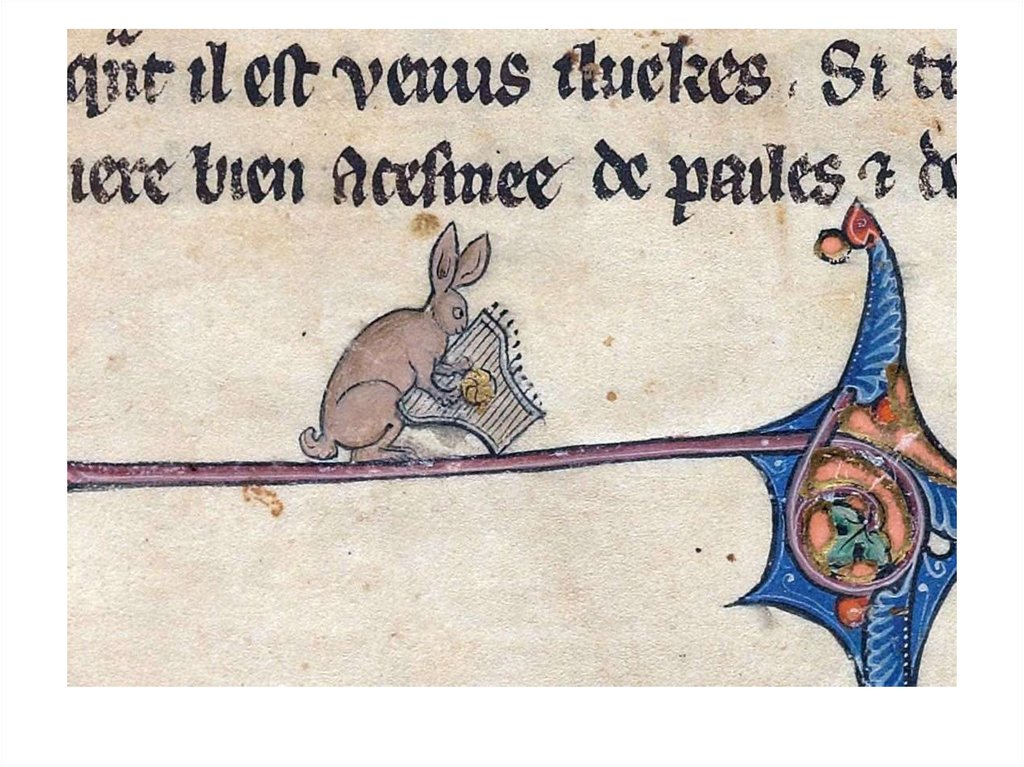 qñt il est venus iluekes. Si tr
iere bien Acesmee de pailes ⁊ de